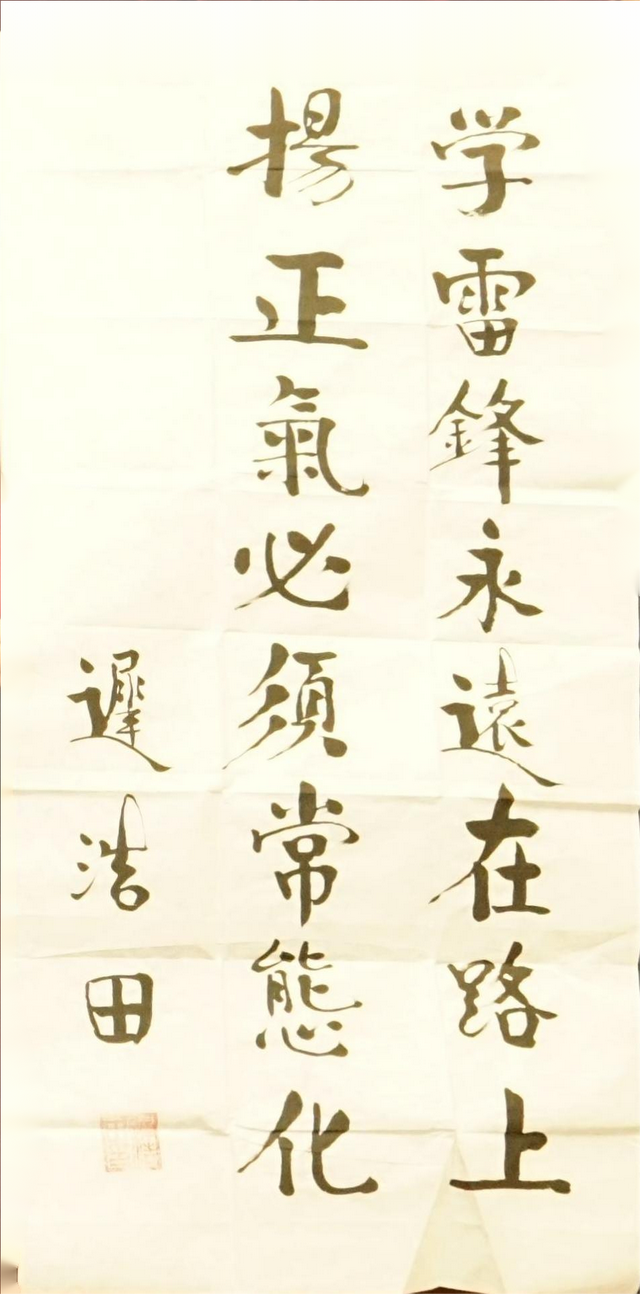 学雷鋒永遠在路上
揚正氣必須常態化
遲浩田